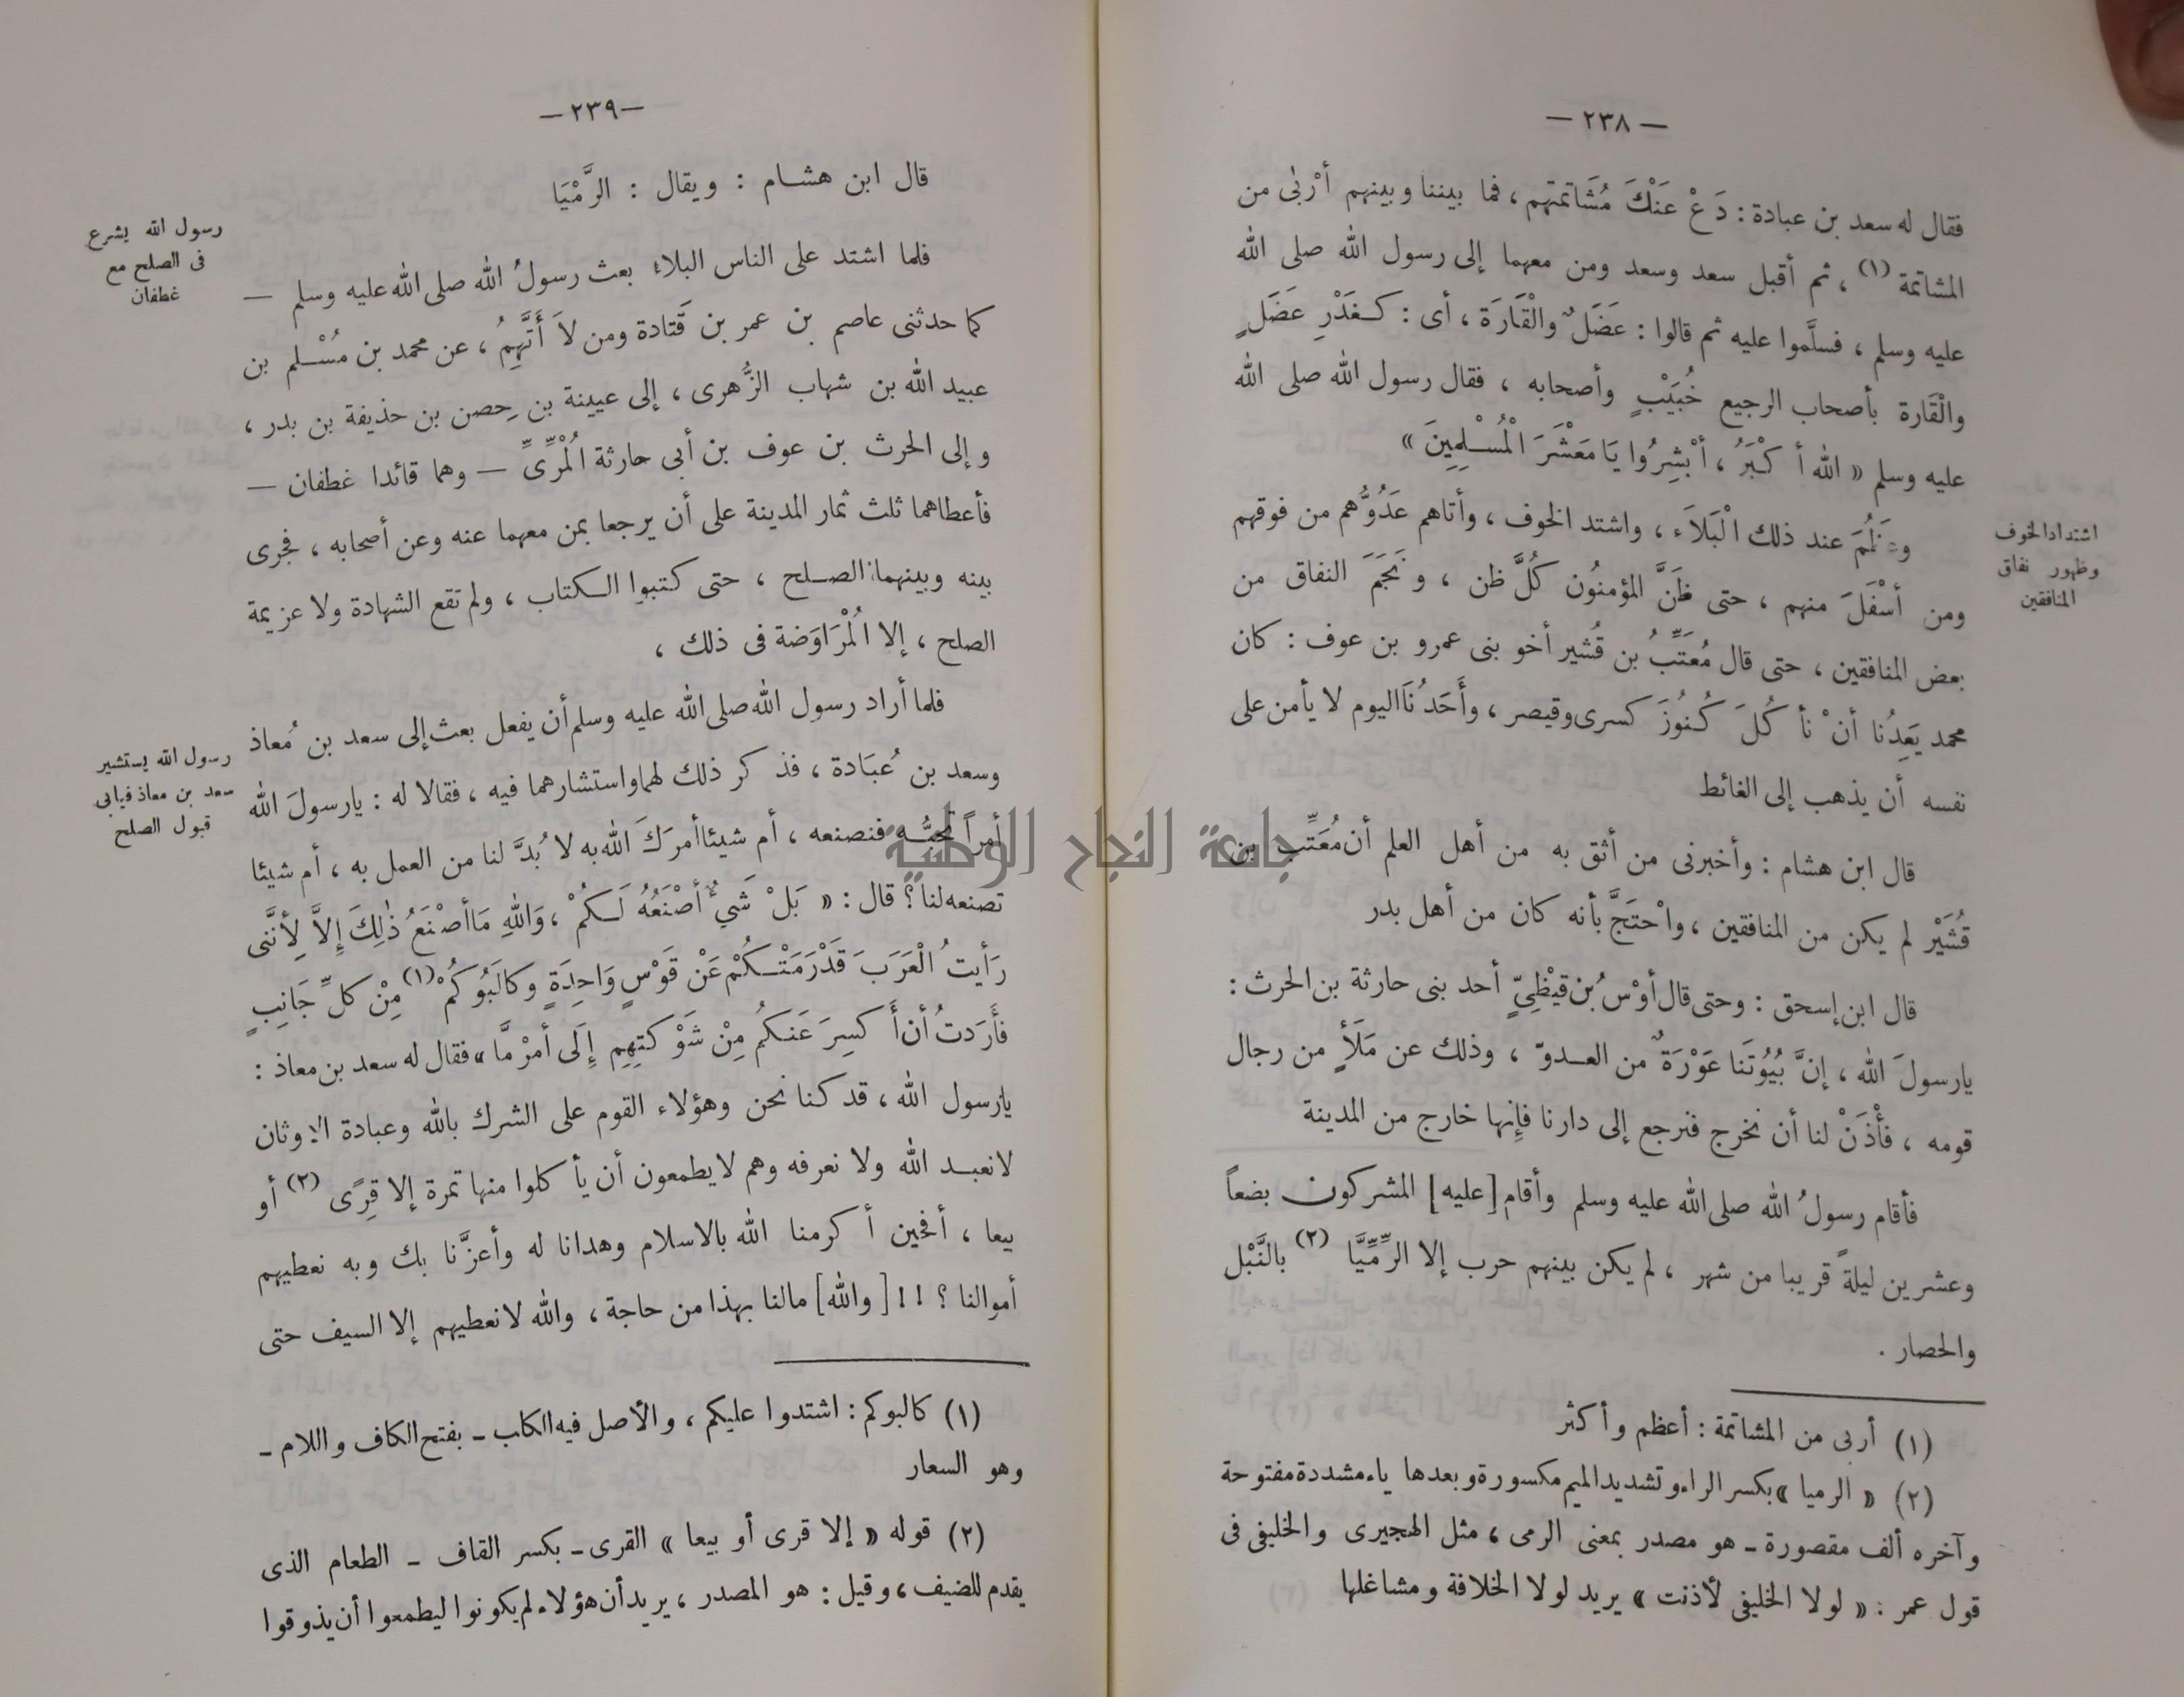 — ٢٣٨ —
فقال له سعد بن عبادة : دَعْ عَنْكَ مُشَاتمتهم ، فما بيننا وبينهم أرْبٰى من
المشاتمة (١) ، ثم أقبل سعد وسعد ومن معهما إلى رسول الله صلى الله
عليه وسلم ، فسلَّموا عليه ثم قالوا : عَضَلٌ والْقَارَة ، أى : كـغَدْرِ عَضَلٍ
والْقَارة بأصحاب الرجيع خُبَيْبٍ وأصحابه ، فقال رسول الله صلى الله
عليه وسلم « الله أَكْبَرُ ، أَبْشِرُوا يَا مَعْشَرَ الْمُسْلِمِينَ »
اشتداد الخوف
وظهور نفاق
المنافقين
وعَظُمَ عند ذلك الْبَلاَء ، واشتد الخوف ، وأتاهم عَدُوُّهم من فوقهم
ومن أسْفَلَ منهم ، حتى ظَنَّ المؤمنُون كُلَّ ظن ، ونَجَمَ النفاق من
بعض المنافقين ، حتى قال مُعَتِّبُ بن قُشير أخو بنى عمرو بن عوف : كان
محمد يَعِدُنا أنْ نأكُلَ كُنُوزَ كسرى وقيصر ، وأَحَدُنَا اليوم لا يأمن على
نفسه أن يذهب إلى الغائط
قال ابن هشام : وأخبرنى من أثق به من أهل العلم أن مُعَتِّب ابن
قُشَيْر لم يكن من المنافقين ، واحْتَجَّ بأنه كان من أهل بدر
قال ابن إسحق : وحتى قال أوْسُ بن قَيْظِيٍّ أحد بنى حارثة بن الحرث :
يارسولَ الله ، إنَّ بُيُوتَنا عَوْرَةٌ من العـدوّ ، وذلك عن مَلَأٍ من رجال
قومه ، فأْذَنْ لنا أن نخرج فنرجع إلى دارنا فإنها خارج من المدينة
فأقام رسولُ الله صلى الله عليه وسلم وأقام [عليه] المشركون بضعاً
وعشرين ليلةً قريبا من شهر ، لم يكن بينهم حرب إلا الرِّمِّيَّا (٢) بالنَّبْل
والحصار .
(١) أربى من المشاتمة : أعظم وأكثر
(٢) « الرميا » بكسر الراء وتشديد الميم مكسورة وبعدها ياء مشددة مفتوحة
وآخره ألف مقصورة ـ هو مصدر بمعنى الرمى ، مثل الهجيرى والخليفى فى
قول عمر : « لولا الخليفى لأذنت » يريد لولا الخلافة ومشاغلها
— ٢٣٩ —
قال ابن هشـام : ويقال : الرَّمْيَا
رسول الله يشرع
فى الصلح مع
غطفان
فلما اشتد على الناس البلاء بعث رسولُ الله صلى الله عليه وسلم —
كما حدثنى عاصم بن عمر بن قَتادة ومن لاَ أَتَّهِمُ ، عن محمد بن مُسْـلم بن
عبيد الله بن شهاب الزُّهرى ، إلى عيينة بن حِصن بن حذيفة بن بدر ،
وإلى الحرث بن عوف بن أبى حارثة الْمُرِّىِّ — وهما قائدا غطفان —
فأعطاهما ثلث ثمار المدينة على أن يرجعا بمن معهما عنه وعن أصحابه ، فجرى
بينه وبينهما الصـلح ، حتى كتبوا الـكتاب ، ولم تقع الشهادة ولا عزيمة
الصلح ، إلا الْمُرَاوَضة فى ذلك ،
رسول الله يستشير
سعد بن معاذ فيأبى
قبول الصلح
فلما أراد رسول الله صلى الله عليه وسلم أن يفعل بعث إلى سعد بن مُعاذ
وسعد بن عُبَادة ، فذكر ذلك لهما واستشارهما فيه ، فقالا له : يارسولَ الله
أمراً تحبُّـه فنصنعه ، أم شيئا أمرَكَ الله به لا بُدَّ لنا من العمل به ، أم شيئا
تصنعه لنا ؟ قال : « بَلْ شَيْءٌ أصْنَعُهُ لَـكُمْ ، وَاللهِ مَا أصْنَعُ ذٰلِكَ إلاَّ لِأَنَّنى
رَأَيتُ الْعَرَبَ قَدْ رَمَتْـكُمْ عَنْ قَوْسٍ وَاحِدَةٍ وكالَبُوكُمْ (١) مِنْ كلِّ جَانِبٍ
فأَرَدتُ أن أَكسِرَ عَنـكُمْ مِنْ شَوْكتِهِم إلَى أمْرٍ مَّا » فقال له سعد بن معاذ :
يارسول الله ، قد كنا نحن وهؤلاء القوم على الشرك بالله وعبادة الاوثان
لا نعبـد الله ولا نعرفه وهم لا يطمعون أن يأكلوا منها تمرة إلا قِرًى (٢) أو
بيعا ، أفحين أكرمنا الله بالاسلام وهدانا له وأعزَّنا بك وبه نعطيهم
أموالنا ؟ !! [والله] مالنا بهذا من حاجة ، والله لا نعطيهم إلا السيف حتى
(١) كالبوكم : اشتدوا عليكم ، والأصل فيه الكلب ـ بفتح الكاف واللام ـ
وهو السعار
(٢) قوله « إلا قرى أو بيعا » القرى ـ بكسر القاف ـ الطعام الذى
يقدم للضيف ، وقيل : هو المصدر ، يريد أن هؤلاء لم يكونوا ليطمعوا أن يذوقوا
جامعة النجاح الوطنية